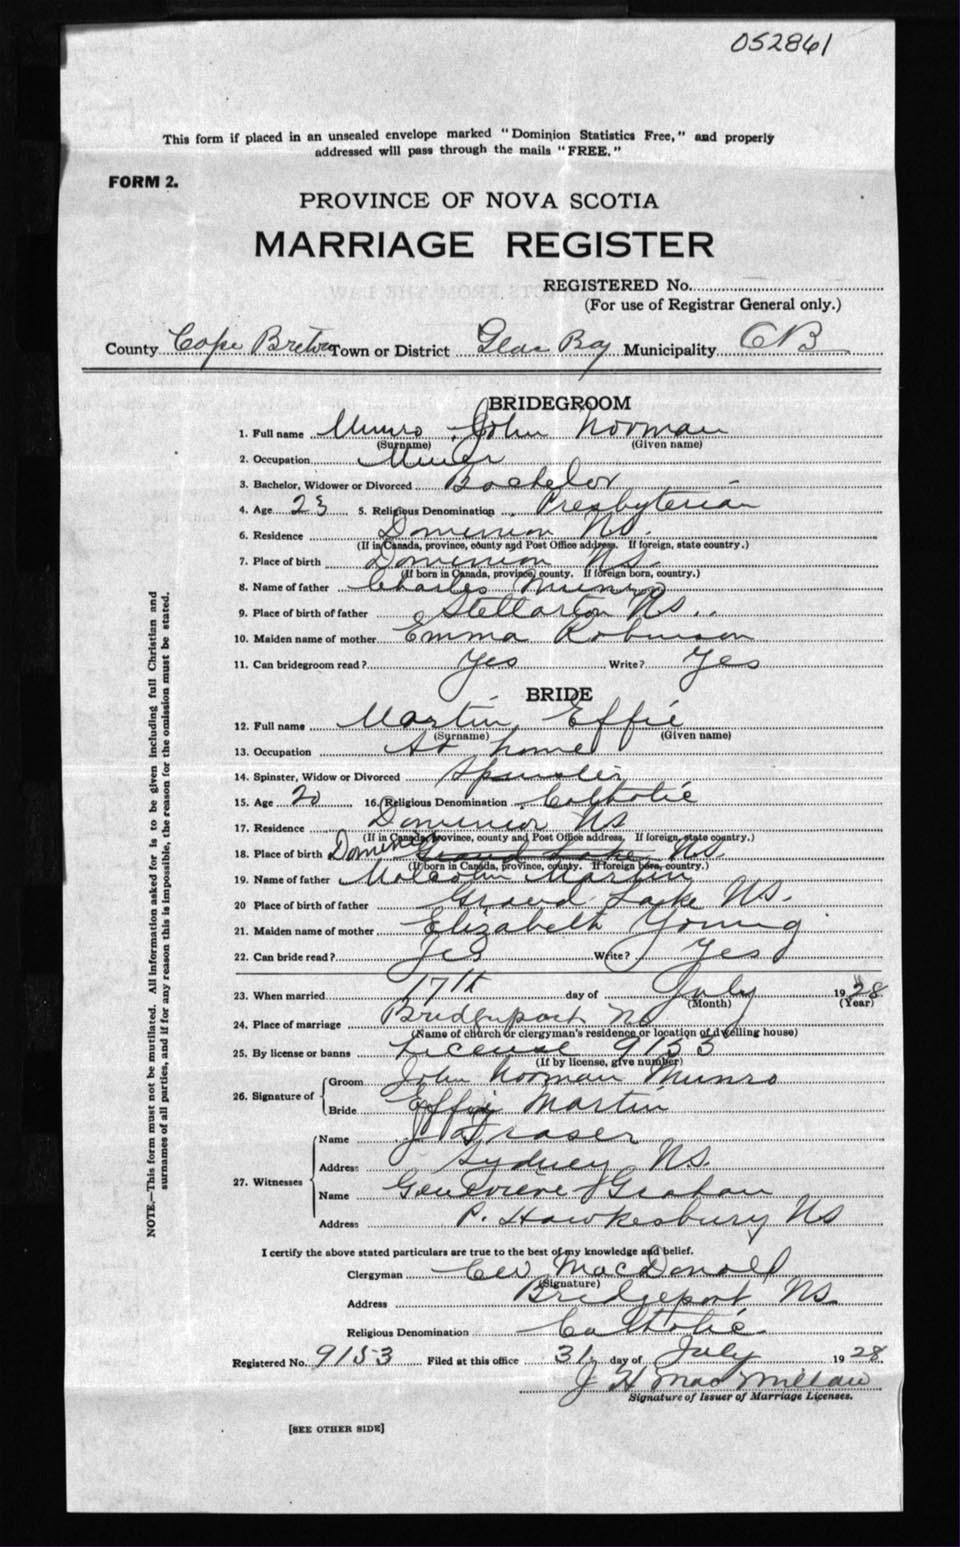 052861
This form if placed in an unsealed envelope marked "Dominion Statistics Free," and properly
addressed will pass through the mails "FREE."
FORM 2.
PROVINCE OF NOVA SCOTIA
MARRIAGE REGISTER
REGISTERED No.
(For use of Registrar General only.)
County Cape Breton Town or District Glace Bay Municipality CB
BRIDEGROOM
1. Full name Munro John Norman
(Surname) (Given name)
2. Occupation Miner
3. Bachelor, Widower or Divorced Bachelor
4. Age 23 5. Religious Denomination Presbyterian
6. Residence Dominion NS.
(If in Canada, province, county and Post Office address. If foreign, state country.)
7. Place of birth Dominion NS.
(If born in Canada, province, county. If foreign born, country.)
8. Name of father Charles Munro
9. Place of birth of father Stellarton NS.
10. Maiden name of mother Emma Robinson
11. Can bridegroom read? Yes Write? Yes
BRIDE
12. Full name Martin Effie
(Surname) (Given name)
13. Occupation At home
14. Spinster, Widow or Divorced Spinster
15. Age 20 16. Religious Denomination Catholic
17. Residence Dominion NS
(If in Canada, province, county and Post Office address. If foreign, state country.)
18. Place of birth Dominion Grand Lake NS.
(If born in Canada, province, county. If foreign born, country.)
19. Name of father Malcolm Martin
20 Place of birth of father Grand Lake NS.
21. Maiden name of mother Elizabeth Young
22. Can bride read? Yes Write? Yes
23. When married 17th day of July 1928
(Month) (Year)
24. Place of marriage Bridgeport NS
(Name of church or clergyman's residence or location of dwelling house)
25. By license or banns License 9153
(If by license, give number)
26. Signature of Groom John Norman Munro
Bride Effie Martin
27. Witnesses Name J Fraser
Address Sydney NS.
Name Genevieve Graham
Address P. Hawkesbury NS
I certify the above stated particulars are true to the best of my knowledge and belief.
Clergyman MacDonald
(Signature)
Address Bridgeport NS.
Religious Denomination Catholic
Registered No. 9153 Filed at this office 31 day of July 1928
J H MacMillan
Signature of Issuer of Marriage Licenses.
[SEE OTHER SIDE]
NOTE.—This form must not be mutilated. All information asked for is to be given including full Christian and
surnames of all parties, and if for any reason this is impossible, the reason for the omission must be stated.